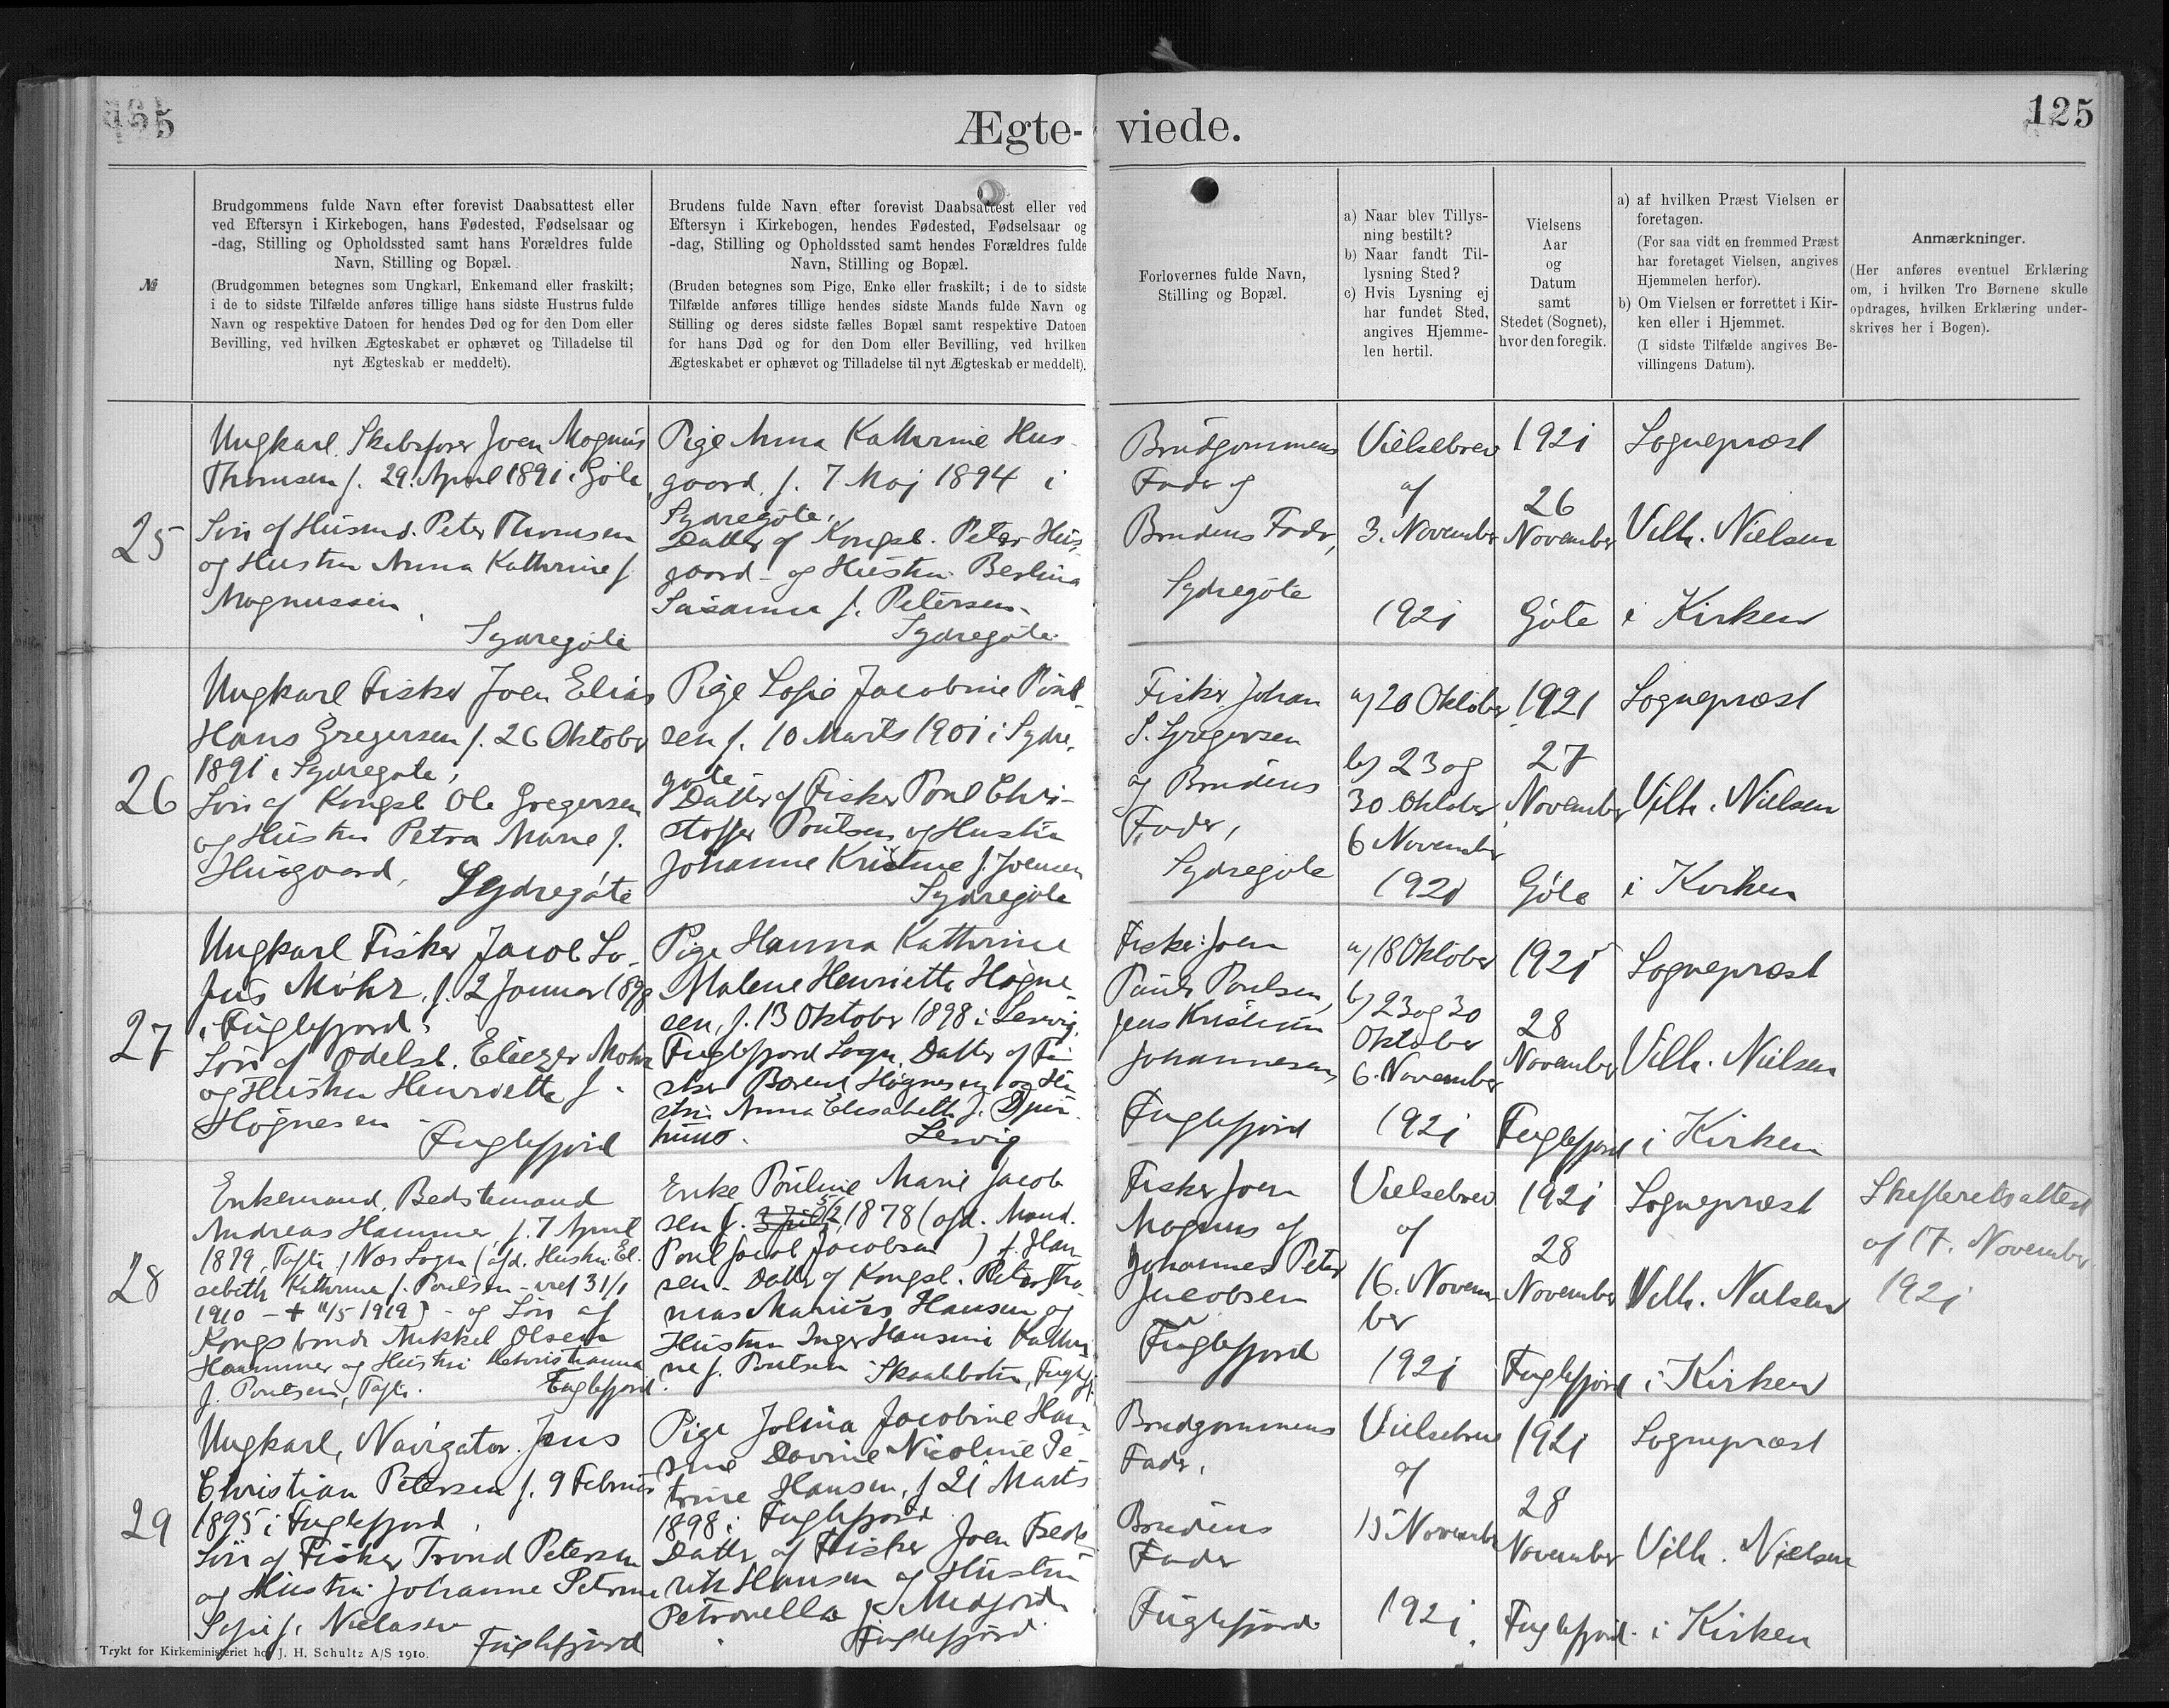 125
Ægte- viede.
125
№
Brudgommens fulde Navn efter forevist Daabsattest eller
ved Eftersyn i Kirkebogen, hans Fødested, Fødselsaar og
-dag, Stilling og Opholdssted samt hans Forældres fulde
Navn, Stilling og Bopæl.
(Brudgommen betegnes som Ungkarl, Enkemand eller fraskilt;
i de to sidste Tilfælde anføres tillige hans sidste Hustrus fulde
Navn og respektive Datoen for hendes Død og for den Dom eller
Bevilling, ved hvilken Ægteskabet er ophævet og Tilladelse til
nyt Ægteskab er meddelt).
Brudens fulde Navn efter forevist Daabsattest eller ved
Eftersyn i Kirkebogen, hendes Fødested, Fødselsaar og
-dag, Stilling og Opholdssted samt hendes Forældres fulde
Navn, Stilling og Bopæl.
(Bruden betegnes som Pige, Enke eller fraskilt; i de to sidste
Tilfælde anføres tillige hendes sidste Mands fulde Navn og
Stilling og deres sidste fælles Bopæl samt respektive Datoen
for hans Død og for den Dom eller Bevilling, ved hvilken
Ægteskabet er ophævet og Tilladelse til nyt Ægteskab er meddelt).
Forlovernes fulde Navn,
Stilling og Bopæl.
a) Naar blev Tillys-
ning bestilt?
b) Naar fandt Til-
lysning Sted?
c) Hvis Lysning ej
har fundet Sted,
angives Hjemme-
len hertil.
Vielsens
Aar
og
Datum
samt
Stedet (Sognet),
hvor den foregik.
a) af hvilken Præst Vielsen er
foretagen.
(For saa vidt en fremmed Præst
har foretaget Vielsen, angives
Hjemmelen herfor).
b) Om Vielsen er forrettet i Kir-
ken eller i Hjemmet.
(I sidste Tilfælde angives Be-
villingens Datum).
Anmærkninger.
(Her anføres eventuel Erklæring
om, i hvilken Tro Børnene skulle
opdrages, hvilken Erklæring under-
skrives her i Bogen).
25
Ungkarl Skibsfører Joen Magnus
Thomsen f. 29. April 1891 i Gøte,
Søn af Husmd. Peter Thomsen
og Hustru Anna Kathrine f.
Magnussen
Sydregøte
Pige Anna Kathrine Hus-
gaard, f. 7 Maj 1894 i
Sydregøte,
Datter af Kongsb. Peter Hus-
gaard og Hustru Berlina
Susanna f. Petersen
Sydregøte
Brudgommens
Fader og
Brudens Fader,
Sydregøte
Vielsebrev
af
3. November
1921
1921
26
November
Gøte
Sognepræst
Vilh. Nielsen
i Kirken
26
Ungkarl Fisker Joen Elias
Hans Gregersen f. 26 Oktober
1891 i Sydregøte,
Søn af Kongsb. Ole Gregersen
og Hustru Petra Marie f.
Husgaard,
Sydregøte
Pige Sofie Jacobine Poul-
sen f. 10 Marts 1901 i Sydre-
gøte
Datter af Fisker Poul Chri-
stoffer Poulsen og Hustru
Johanne Kristine f. Joensen
Sydregøte
Fisker Johan
S. Gregersen
og Brudens
Fader,
Sydregøte
a) 20 Oktober
b) 23 og
30 Oktober
6 November
1921
1921
27
November
Gøte
Sognepræst
Vilh. Nielsen
i Kirken
27
Ungkarl Fisker Jacob So-
fus Mohr, f. 2 Januar 1898
i Fuglefjord,
Søn af Odelsb. Eliezer Mohr
og Hustru Henriette f.
Høgnesen
Fuglefjord
Pige Hanna Kathrine
Malene Henriette Høgne-
sen, f. 13 Oktober 1898 i Lervig,
Fuglefjord Sogn, Datter af Fi-
sker Barent Høgnesen og Hu-
stru Anna Elisabeth f. Djur-
huus.
Lervig
Fisker Joen
Pauli Poulsen,
Jens Kristian
Johannesen,
Fuglefjord
a) 18 Oktober
b) 23 og 30
Oktober
6. November
1921
1921
28
November
Fuglefjord
Sognepræst
Vilh. Nielsen
i Kirken
28
Enkemand, Bedstemand
Andreas Hammer, f. 7 April
1879, Tofte, Nes Sogn (afd. Hustru El-
sebeth Kathrine f. Poulsen - viet 31/1
1910 - + 11/5 1919) - og Søn af
Kongsbonde Mikkel Olsen
Hammer og Hustru Christianna
f. Poulsen, Tofte.
Fuglefjord
Enke Pouline Marie Jacob-
sen f. 1878 (afd. Mand.
Poul Jacob Jacobsen) f. Han-
sen - Datter af Kongsb. Peter Tho-
mas Marius Hansen og
Hustru Inger Hansine Kathri-
ne f. Poulsen Skaalebotn, Fuglefj.
Fisker Joen
Magnus af
Johannes Peter
Jacobsen
Fuglefjord
Vielsebrev
af
16. Novem-
ber
1921
1921
28
November
Fuglefjord
Sognepræst
Vilh. Nielsen
i Kirken
Skifteretsattest
af 17. November
1921
29
Ungkarl, Navigatør Jens
Christian Petersen f. 9 Februar
1895 i Fuglefjord,
Søn af Fisker Trond Petersen
og Hustru Johanne Petrine
Sofie f. Nielasen
Fuglefjord
Pige Jolina Jacobine Han-
sine Davine Nicoline Pe-
trine Hansen, f. 21 Marts
1898 i Fuglefjord
Datter af Fisker Joen Frede-
rik Hansen og Hustru
Petronella f. Midjord
Fuglefjord
Brudgommens
Fader,
Brudens
Fader
Fuglefjord
Vielsebrev
af
15 November
1921
1921
28
November
Fuglefjord
Sognepræst
Vilh. Nielsen
i Kirken
Trykt for Kirkeministeriet hos J. H. Schultz A/S 1910.